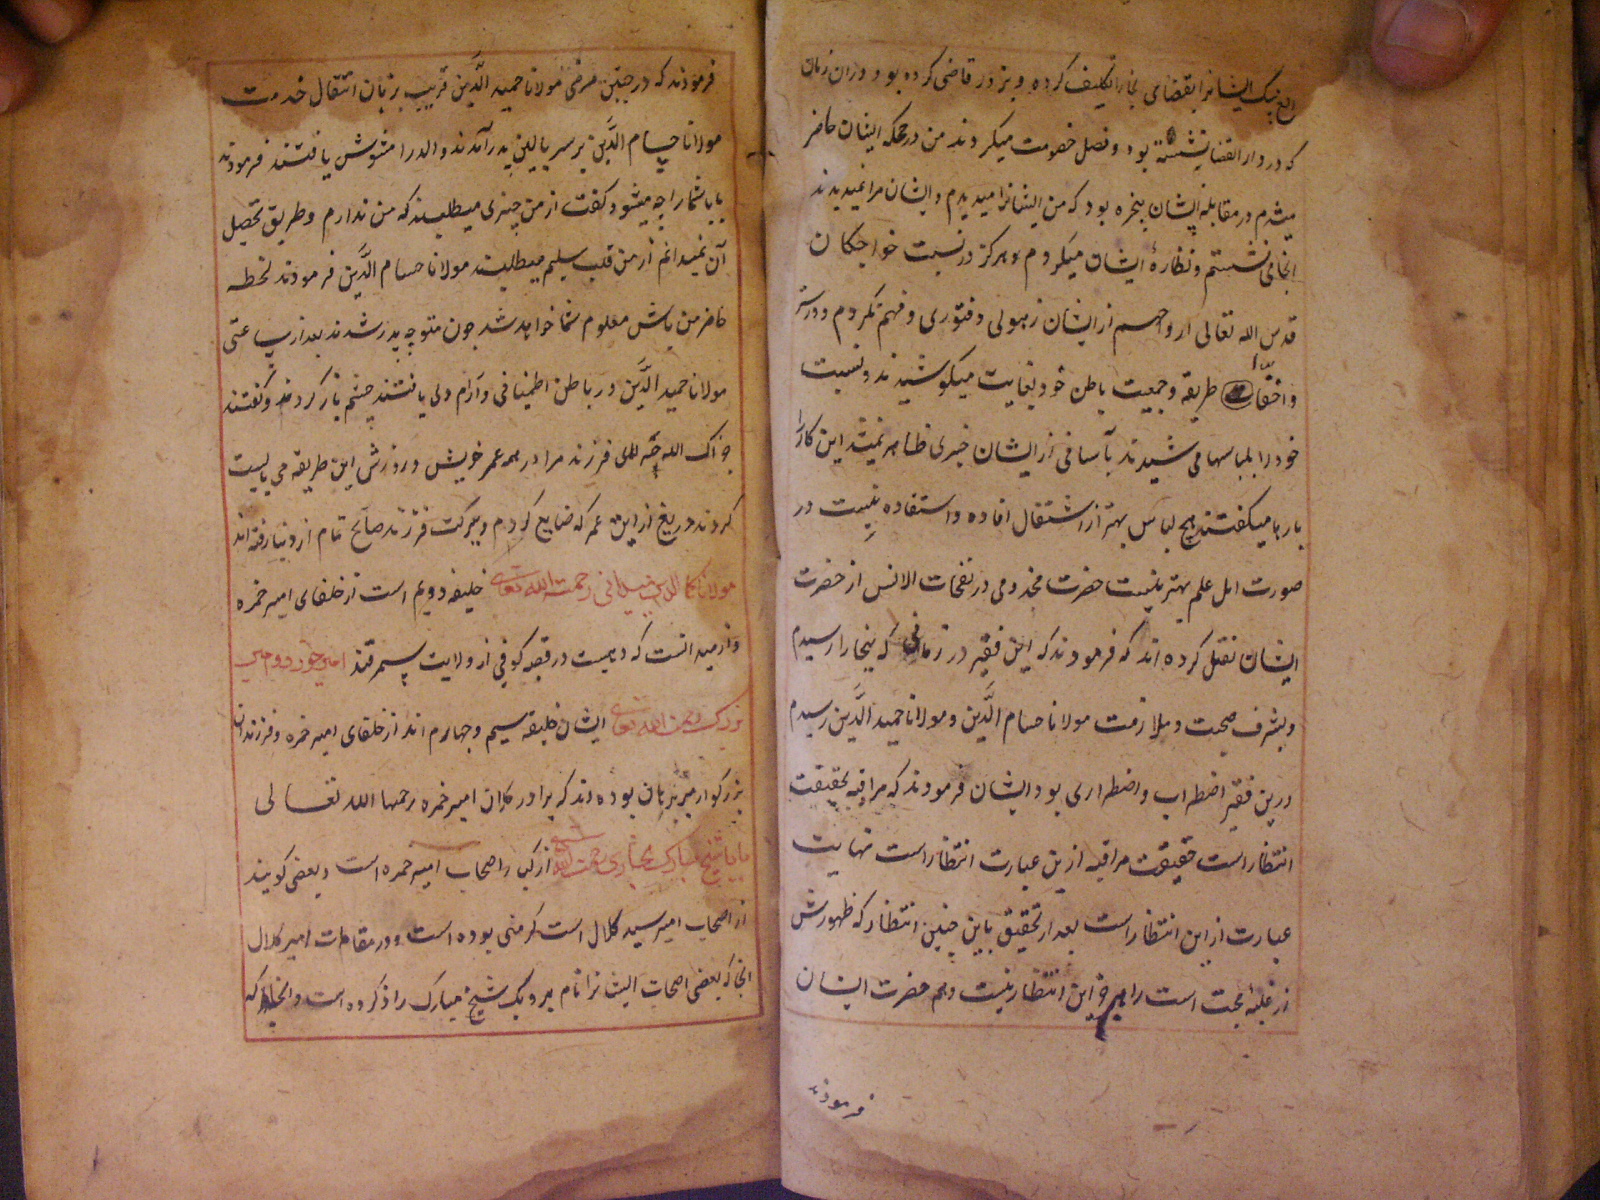 الغ بیک ایشانرا بقضای بخارا تکلیف کرده و بزور قاضی کرده بود و دران زمان
که در دار القضا نشسته بود و فصل خصومت میکردند من در محکمه ایشان حاضر
میشدم در مقابله ایشان پنجره بود که من ایشانرا میدیدم و ایشان مرا نمیدیدند
انجا می نشستم و نظارهٔ ایشان میکردم و هرگز در نسبت خواجکان
قدس الله تعالی ارواحهم از ایشان زهولی و فتوری فهم نکردم و در ستر
و اخفاء طریقه و جمعیت باطن خود بغایت میکوشیدند و نسبت
خود را بلباسها می پوشیدند بآسانی از ایشان چیزی ظاهر نمیشد این کار را
بارها میکفتند هیچ لباس بهتر از اشتغال افاده و استفاده نیست در
صورت اهل علم بهتر نیست حضرت مخدومی در نفحات الانس از حضرت
ایشان نقل کرده اند که فرمودند که این فقیر در زمانی که ببخارا رسیدم
و بشرف صحبت و ملازمت مولانا حسام الدَّین و مولانا حمید الدَّین رسیدم
درین فقیر اضطراب و اضطراری بود ایشان فرمودند که مراقبه بحقیقت
انتظار است حقیقت مراقبه ازین عبارت انتظار است نهایت
عبارت ازاین انتظار است بعد از تحقیق باین چنین انتظار که ظهورش
از غلبهٔ محبت است راهبر جز این انتظار نیست و هم حضرت ایشان
فرمودند
فرمودند که در حین مرض مولانا حمید الدَّین قریب بزبان انتقال خدمت
مولانا حسام الدَّین بر سر بالین پدر آمدند والد را مشوش یافتند فرمودند
بابا شما را چه میشود کفت از من چیزی میطلبند که من ندارم و طریق تحصیل
آن نمیدانم از من قلب سلیم میطلبند مولانا حسام الدَّین فرمودند لحظه
حاضر من باش معلوم شما خواهد شد چون متوجه پدر شدند بعد از ساعتی
مولانا حمید الدَّین در باطن اطمینانی و آرام دلی یافتند چشم باز کردند و کفتند
جزاک الله ای فرزند مرا در همه عمر خویش ورزش این طریقه می بایست
کردند دریغ از این عمر که ضایع کردم و ببرکت فرزند صالح تمام از دنیا رفته اند
مولانا کمال الدین میدانی رحمت الله تعالی خلیفه دویم است از خلفای امیر حمزه
و از میدانست که دهیست در قصبه کوفی از ولایت سمرقند امیر خورد و امیر
بزرک رحمت الله تعالی ایشان خلیفه سیم و چهارم اند از خلفای امیر حمزه و فرزندان
بزرکوار میر برهان بوده اند که برادر کلان امیر حمزه رحمها الله تعالی
بابا شیخ مبارک بخاری رحمت الله از کبار اصحاب امیر حمزه است و بعضی کویند
از اصحاب امیر سید کلال است کرمنی بوده است و در مقامات امیر کلال
انجا که بعضی اصحاب ایشانرا نام برد یک شیخ مبارک را ذکر کرده است و انجا که